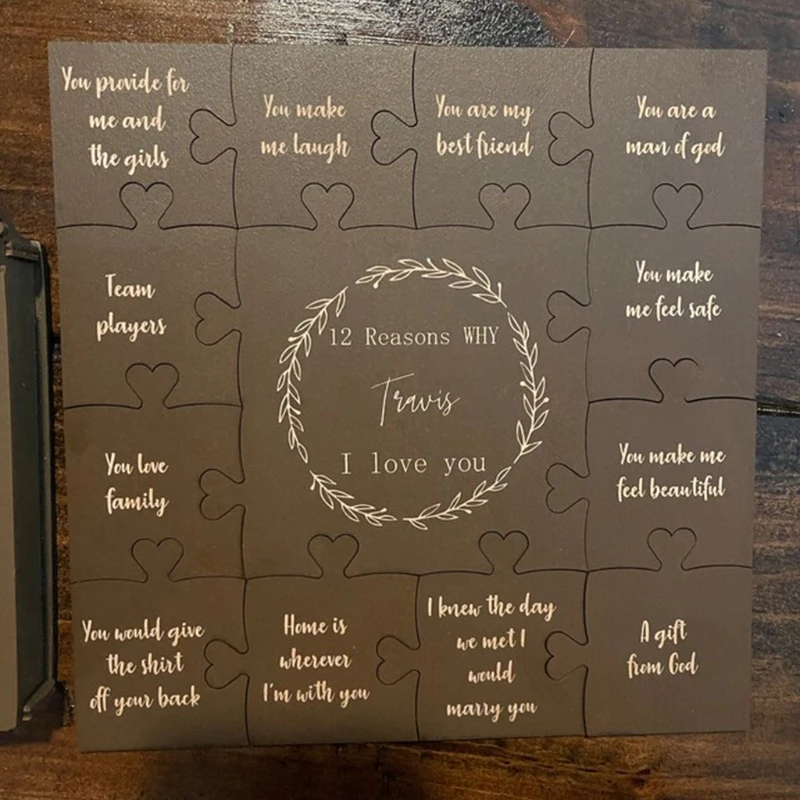 You provide for
me and
the girls
You make
me laugh
You are my
best friend
You are a
man of god
Team
players
12 Reasons WHY
Travis
I love you
You make
me feel safe
You love
family
You make me
feel beautiful
You would give
the shirt
off your back
Home is
wherever
I'm with you
I knew the day
we met I
would
marry you
A gift
from God